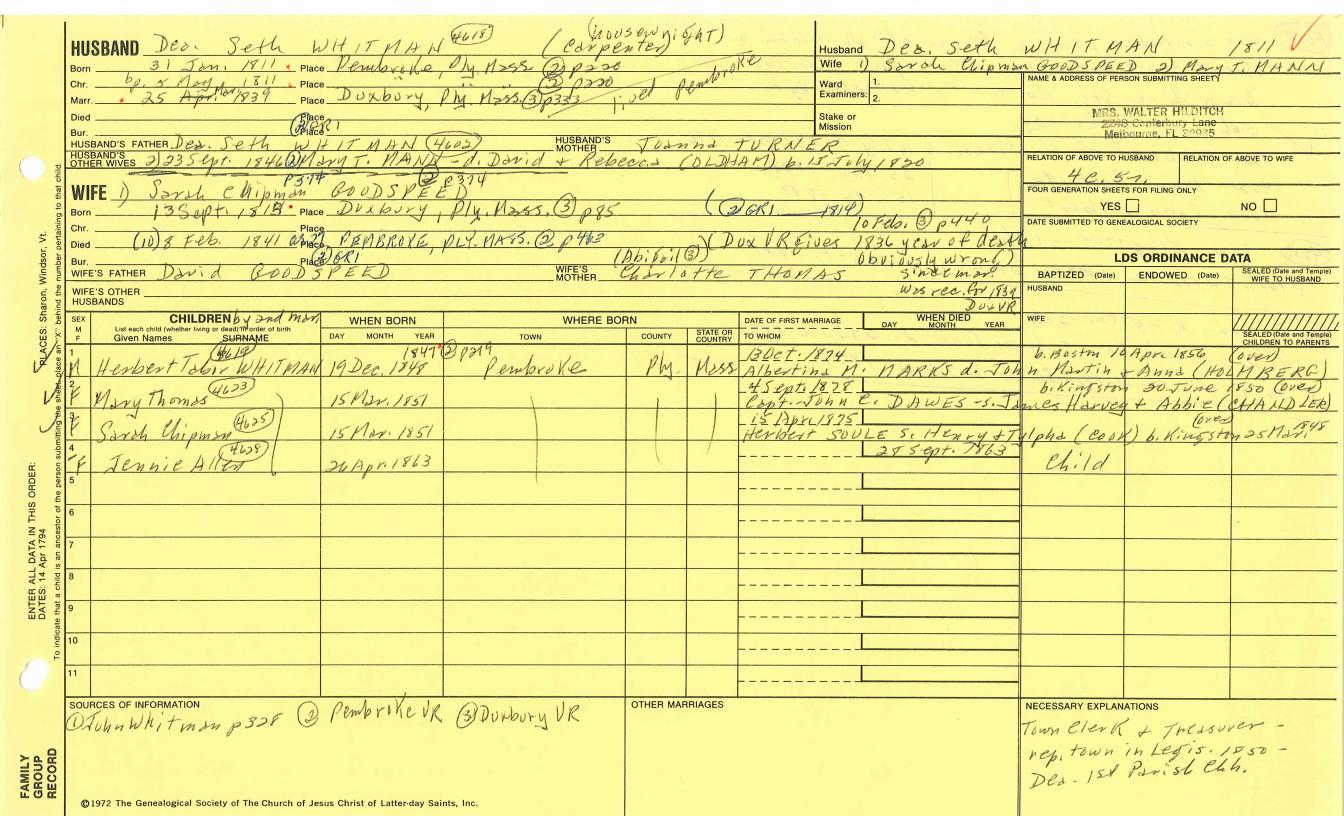 HUSBAND Dea. Seth WHITMAN 4618 (housewright) (Carpenter)
Born 31 Jan. 1811 Place Pembroke, Ply. Mass. ② p220
Chr. bp. 5 May 1811 Place ② p220
Marr. 25 Apr. Mar. 1839 Place Duxbury, Ply. Mass. ③ p333 lived Pembroke
Died Place
Bur. Place ② GR1
HUSBAND'S FATHER Dea. Seth WHITMAN 4602 HUSBAND'S MOTHER Joanna TURNER
HUSBAND'S OTHER WIVES 2) 23 Sept. 1846 ② Mary T. MANN - d. David & Rebecca (OLDHAM) b. 15 July 1820
p374 ② p374
WIFE 1) Sarah Chipman GOODSPEED
Born 13 Sept. 1815 Place Duxbury, Ply. Mass. ③ p85 (② GR1 1814)
Chr. Place 10 Feb. ③ p440
Died (10) 8 Feb. 1841 Place PEMBROKE, PLY. MASS. ② p462 (Dux VR gives 1836 year of death
Bur. Place ② GR1 (Abigail ③) obviously wrong)
WIFE'S FATHER David GOODSPEED WIFE'S MOTHER Charlotte THOMAS since mar.
WIFE'S OTHER HUSBANDS was rec. for 1839
Dux VR
Husband Dea. Seth WHITMAN 1811
Wife 1) Sarah Chipman GOODSPEED 2) Mary T. MANN
Ward Examiners: 1.
2.
Stake or Mission
NAME & ADDRESS OF PERSON SUBMITTING SHEET
MRS. WALTER HILDITCH
Canterbury Lane
Melbourne, FL
RELATION OF ABOVE TO HUSBAND RELATION OF ABOVE TO WIFE
4c. 5r.
FOUR GENERATION SHEETS FOR FILING ONLY
YES NO
DATE SUBMITTED TO GENEALOGICAL SOCIETY
LDS ORDINANCE DATA
BAPTIZED (Date) ENDOWED (Date) SEALED (Date and Temple) WIFE TO HUSBAND
HUSBAND
WIFE
SEALED (Date and Temple) CHILDREN TO PARENTS
SEX M F CHILDREN by 2nd mar. WHEN BORN WHERE BORN DATE OF FIRST MARRIAGE WHEN DIED
List each child (whether living or dead) in order of birth
Given Names SURNAME DAY MONTH YEAR TOWN COUNTY STATE OR COUNTRY TO WHOM DAY MONTH YEAR
1 4619 1847 ② p219 13 Oct. 1874 b. Boston 16 Apr. 1856 (over)
M Herbert WHITMAN 19 Dec. 1848 Pembroke Ply. Mass Albertina M. MARKS d. John Martin & Anna (HOLMBERG)
2 4623 4 Sept. 1878 b. Kingston 20 June 1850 (over)
F Mary Thomas 15 Mar. 1851 Capt. John C. DAWES - s. James Harvey & Abbie (CHANDLER)
3 4625 15 Apr. 1875 (over)
F Sarah Chipman 15 Mar. 1851 Herbert SOULE s. Henry & Sylpha (COOK) b. Kingston 25 Mar. 1848
4 4628 28 Sept. 1863
F Jennie Allen 26 Apr. 1863 Child
5
6
7
8
9
10
11
SOURCES OF INFORMATION
① John Whitman p328 ② Pembroke VR ③ Duxbury VR
OTHER MARRIAGES
NECESSARY EXPLANATIONS
Town Clerk & Treasurer -
rep. town in Legis. 1850 -
Dea. 1st Parish Chh.
©1972 The Genealogical Society of The Church of Jesus Christ of Latter-day Saints, Inc.
FAMILY GROUP RECORD
ENTER ALL DATA IN THIS ORDER:
DATES: 14 Apr 1794
PLACES: Sharon, Windsor, Vt.
To indicate that a child is an ancestor of the person submitting the sheet, place an "X" behind the number pertaining to that child.